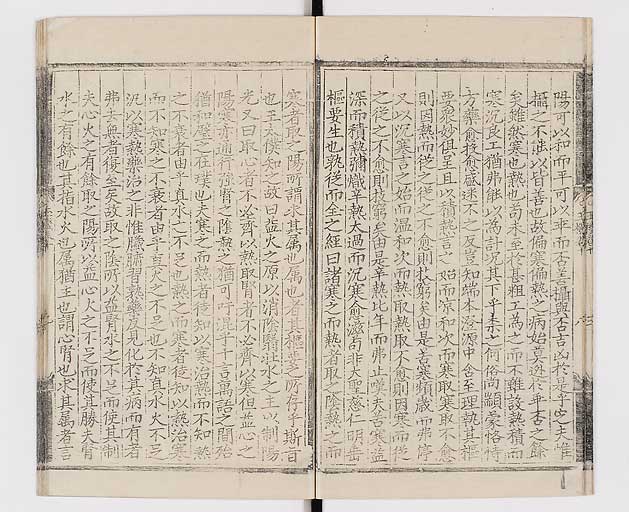 陽可以和而平可以乖而否善攝與否吉凶於是乎歧之夫惟
攝之不能以皆善也故偏寒偏熱之病始莫逃於乖否之餘
矣雖然寒也熱也苟未至於甚粗工為之而不難設熱積而
寒沉良工猶弗能以為計況其下乎柰之何俗尚顓蒙恪恃
方藥愈投愈盛迷不之反豈知端本澄源中含至理執其樞
要衆妙俱呈且以積熱言之始而凉和次而寒取寒取不愈
則因熱而從之從之不愈則技窮矣由是苦寒頻歲而弗停
又以沉寒言之始而溫和次而熱取熱取不愈則因寒而從
之從之不愈則技窮矣由是辛熱比年而弗止嗟夫苦寒益
深而積熱彌熾辛熱太過而沉寒愈滋苟非大聖慈仁明垂
樞要生也孰從而全之經曰諸寒之而熱者取之陰熱之而
寒者取之陽所謂求其属也属也者其樞要之所存乎斯旨
也王太僕知之故曰益火之原以消陰翳壯水之主以制陽
光又曰取心者不必齊以熱取腎者不必齊以寒但益心之
陽寒亦通行强腎之陰熱之猶可吁混乎千言萬語之間殆
猶和璧之在璞也夫寒之而熱者徒知以寒治熱而不知熱
之不衰者由乎真水之不足也熱之而寒者徒知以熱治寒
而不知寒之不衰者由乎真火之不足也不知真水火不足
汎以寒熱藥治之非惟臓腑習熟藥反見化於其病而有者
弗去無者復至矣故取之陰所以益腎水之不足而使其制
夫心火之有餘取之陽所以益心火之不足而使其勝夫腎
水之有餘也其指水火也属猶主也謂心腎也求其属者言